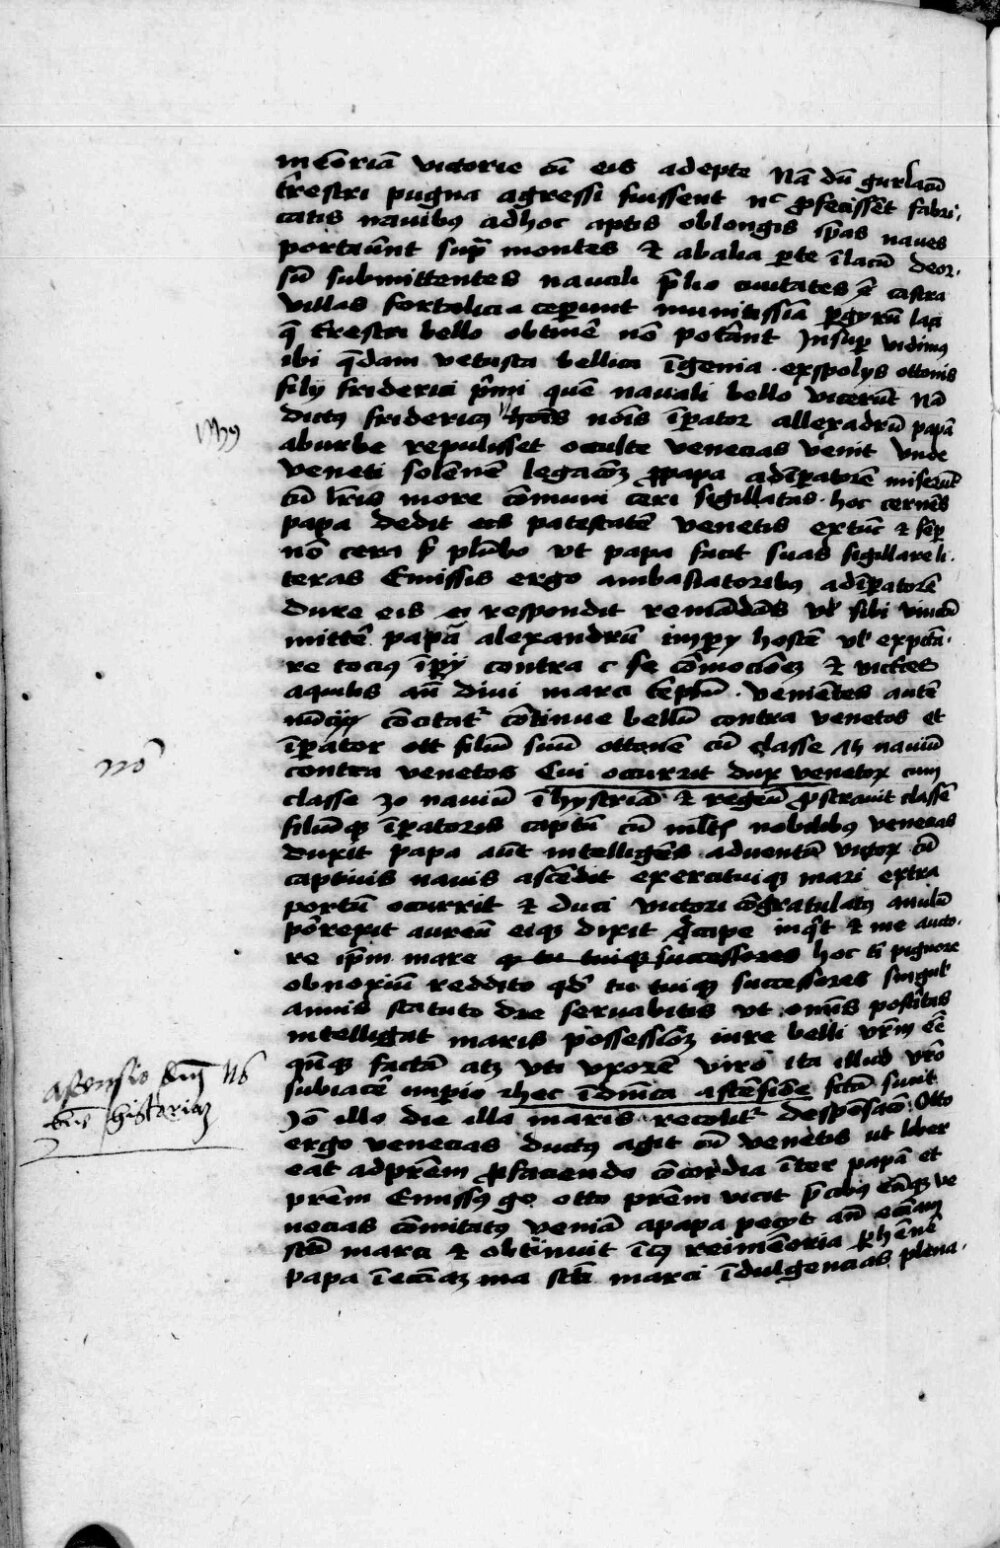 mēoriā victorie cū eis adepte Nā dū gurlacū
t̄restri pugna agressi fuissent nc̄ ꝓfecissēt fabri-
catis navibꝰ adhoc aptis oblongis ip̄as naves
portaūnt supͣ montes & abalia ꝑte ī lacū deor-
sū submittentes navali p̄lio civitates castra
villas fortalicia ceperunt munitissīa ꝑ gyrū laci
q̄ t̄restri bello obtinē nō potānt Insuꝑ vidimꝰ
ibi q̄dam vetusta bellica īgenia · ex spolys ottonis
filij friderici p̄mi quē navali bello vicerūt Nā
dictꝰ fridericꝰ hoīs nōis īꝑator allexādrū papā
aburbe repulisset occulte venecias venit Unde
veneti solēnē legacōꝫ ꝓ papa ad īꝑatorē miserūt
cū lr̄is more cōmuni cera sigillatas · hoc cernēs
papa dedit eis patestatē venetis extūc & sēꝑ
nō cera sꝫ plūbo ut papa facit suas sigillare li-
teras Emissis ergo ambasiatoribꝰ ad īꝑatorē
dure eis ei respondit remādās vl̄ sibi vinctū
mittē papā alexandrū impery hostē vl̄ expctā-
re tociꝰ īꝑij contra se cōmocionꝫ & victrices
aquilis an̄ divi marci tēplū · venientes autē
nūcij cōcitatͬ cōtinue bellū contra venetos et
īꝑator ott filiū suū ottonē cū classe navium
contra venetos Cui occurrit dux venetoꝝ cum
classe 30 naviū ī hystriā & regiū ꝓstravit classē
filiūqꝫ īꝑatoris captū cū ml̄tis nobilibus venecias
duxit papa aūt intelligēs adventū victoꝝ cū
captivis navis ascēdit exercituiqꝫ mari extra
portū occurrit & duci victori cōgratulatꝰ anulū
porrexit aureū eiqꝫ dixit Accipe inqͥt & me aucto-
re ip̄m mare hoc ti pignore
obnoxiū reddito qd̄ tu tuiqꝫ successores singul̄
annis statuto die servabitis ut om̄is posīitas
intelligat maris possessiōꝫ iure belli vr̄m eē
qn̄qꝫ factā atqꝫ uti uxorē viro ita illud vr̄o
subiacē imperio hec ī dn̄ica ascēsiōe fctū fuit
Iō illo die illa maris recolitͬ despēsacō · Otto
ergo venecias ductꝰ agit cū venetis ut liber
eat ad pr̄em ꝓ faciendo cōcordia īter papā et
pr̄em Emissꝰ gͦ otto pr̄em vicit p̄cibꝰ eūqꝫ ve
necias cōmitatꝰ veniā a papa pecyt an̄ ecciam
scti marci & obtinuit ī cꝰ rei mēoria
papa ī ecciaꝫ scti marci īdulgencias plena-
nō
Ascensio
historiaꝫ